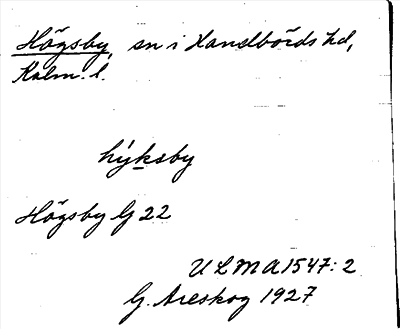 Högsby, sn i Handbörds hd,
Kalm. l.
hýksby
Högsby G 22
ULMA 1547:2
G. Areskog 1927